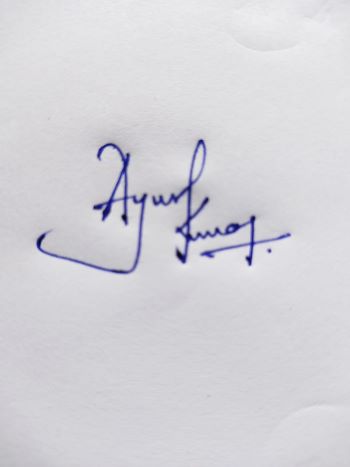 Ayush
Kumar.